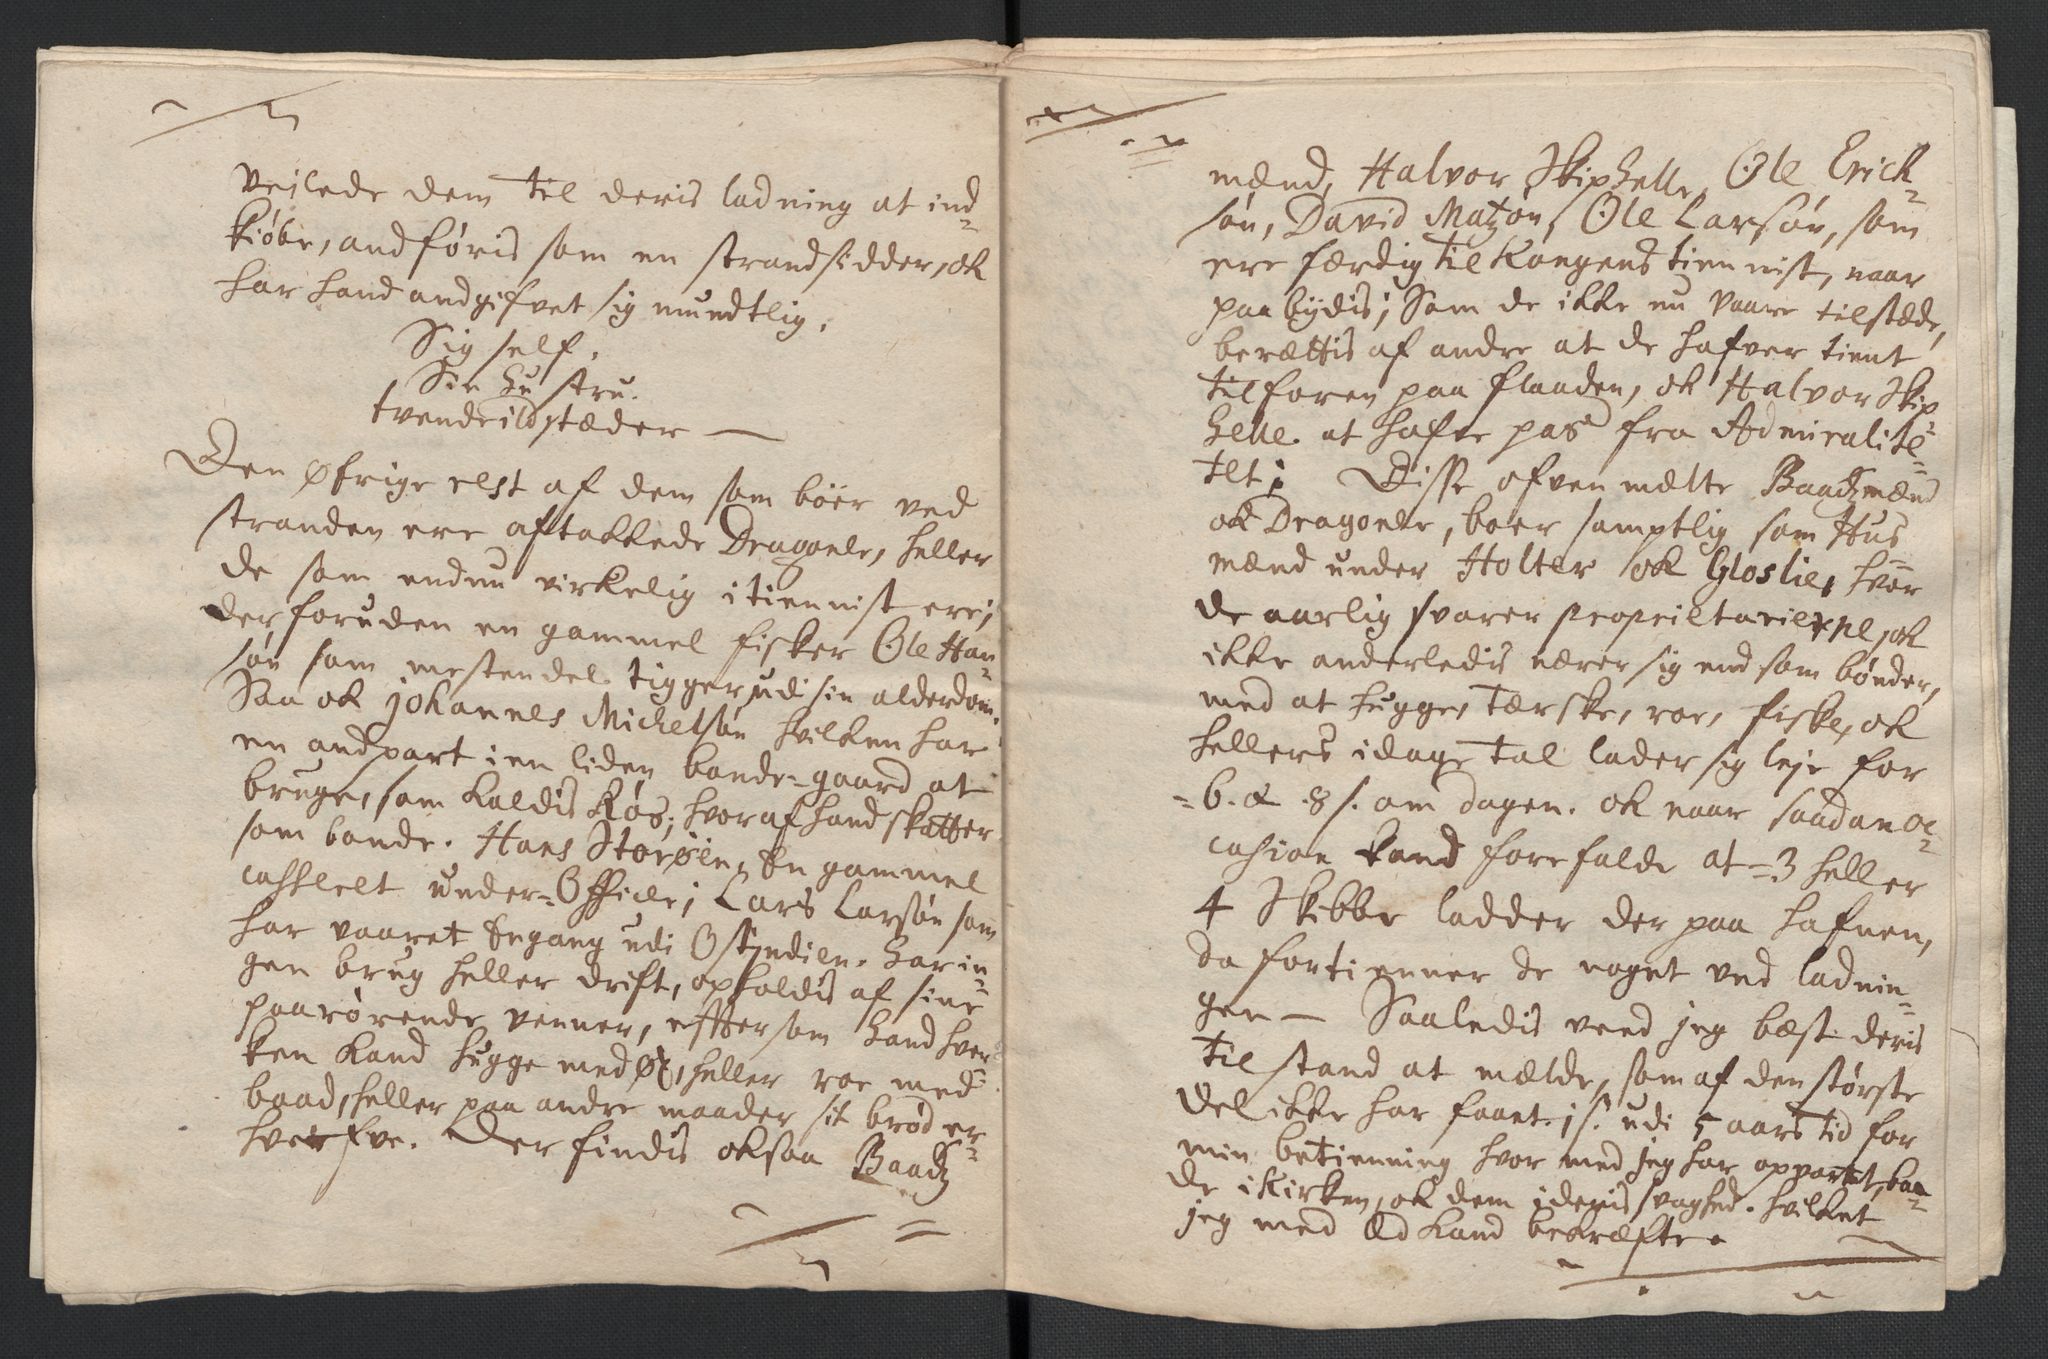 veilede dem til deris ladning at ind-
kiøbe, andføris som en strandsidder, ok
har hand andgifvet sig mundtlig.
Sig self.
Sin hustru.
tvende ildstæder —
Den øfrige rest af dem som böer ved
stranden ere aftakkede Dragoner, heller
de som endnu virkelig i tiennist ere;
der foruden en gammel fisker Ole Han-
søn som mestendel tigger, udi sin alderdom.
Saa ok Johannes Michelsøn hvilken har
en andpart i en liden bonde-gaard at
bruge, som kaldis Røs; hvoraf hand skatter
som bonde. Hans Storøien, en gammel
casseelt under-Officer; Lars Larsøn som
har vaaret engang udi Ostindien. har in-
gen brug heller drift, opholdis af sine
paarørende venner, effter som hand hver-
ken kand hugge med øx, heller roe med
baad, heller paa andre maader sit brød er-
hverfve. Der findis oksaa Baadz
mænd, Halvor Skiphelle, Ole Erick-
søn, David Matzøn, Ole Larsøn, som
ere færdig til Kongens tiennist, naar
paabydis; Som de ikke nu vaare tilstæde,
berættis af andre at de hafver tient
tilforen paa flaaden, ok Halvor Skip
helle at hafve pas fra Admiralite-
tet; Disse ofvenmælte Baadzmænd
ok Dragoner, boer samptlig som Hus
mænd under Holter ok Gloslie, hvor
de aarlig svarer proprietarierne, ok
ikke anderledis nærer sig end som bønder,
med at hugge, tærske, roe, fiske, ok
hellers i dage tal lader sig leje for
6. a 8 s. om dagen. ok naar saadan oc-
casion kand forefalde at 3 heller
4 Skibbe ladder der paa hafnen,
da fortienner de noget ved ladnin-
gen — Saaledis veed jeg bæst deris
tilstand at mælde, som af den største
del ikke har faaet 1 s. udi 5 aars tid for
min betienning hvor med jeg har opvartet, baa-
de i Kirken, ok dem i deris svaghed. hvilket
jeg med Æd kand bekræfte.